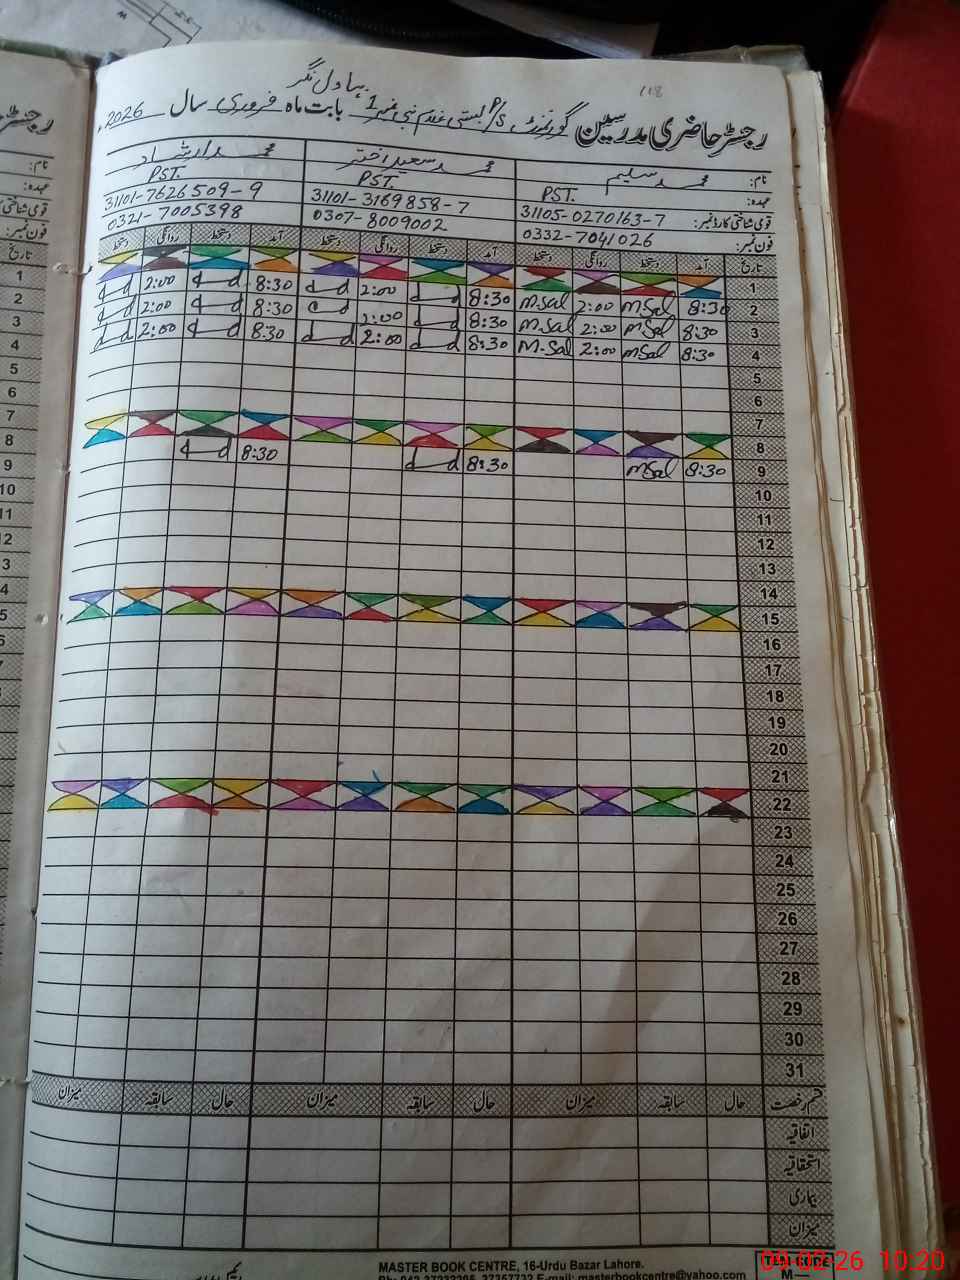 118
بہاولنگر
رجسٹر حاضری مدرسین گورنمنٹ P/S بستی غلام نبی نمبر 1 بابت ماہ فروری سال 2026
نام: محمد سلیم محمد سعید اختر محمد ارشاد
عہدہ: PST. PST. PST.
قومی شناختی کارڈ نمبر: 31105-0270163-7 31101-3169858-7 31101-7626509-9
فون نمبر: 0332-7041026 0307-8009002 0321-7005398
تاریخ آمد دستخط روانگی دستخط آمد دستخط روانگی دستخط آمد دستخط روانگی دستخط
1
2 8:30 MSal 2:00 MSal 8:30 2:00 8:30 2:00
3 8:30 MSal 2:00 MSal 8:30 2:00 8:30 2:00
4 8:30 MSal 2:00 M.Sal 8:30 2:00 8:30 2:00
5
6
7
8
9 8:30 MSal 8:30 8:30
10
11
12
13
14
15
16
17
18
19
20
21
22
23
24
25
26
27
28
29
30
31
قسم رخصت حال سابقہ میزان حال سابقہ میزان حال سابقہ میزان
اتفاقیہ
استحقاقیہ
بیماری
میزان
MASTER BOOK CENTRE, 16-Urdu Bazar Lahore.
E-mail: masterbookcentre@yahoo.com
09-02-26 10:20